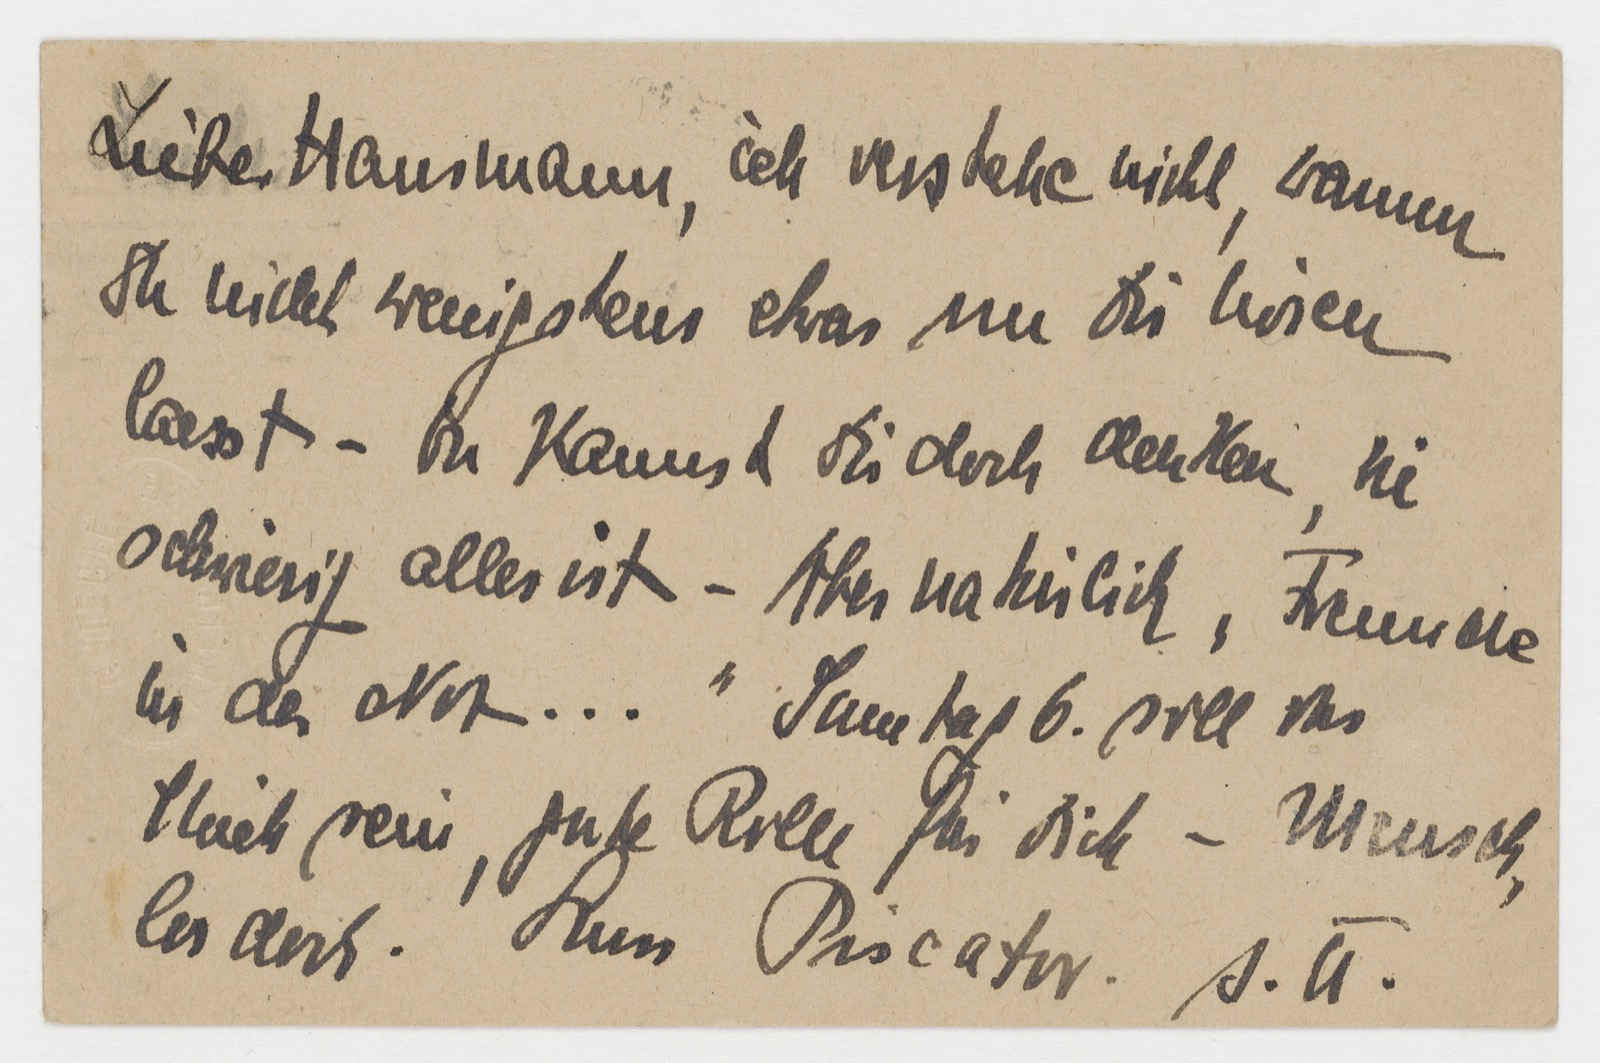 Lieber Hausmann, ich verstehe nicht, warum
Du nicht wenigstens etwas von Dir hören
laesst – Du kannst Dir doch denken, wie
schwierig alles ist – Aber natürlich, Freunde
in der Not... " 6. soll das
Stück sein, gute Rolle für Dich – Mensch,
les doch. Gruss Piscator.